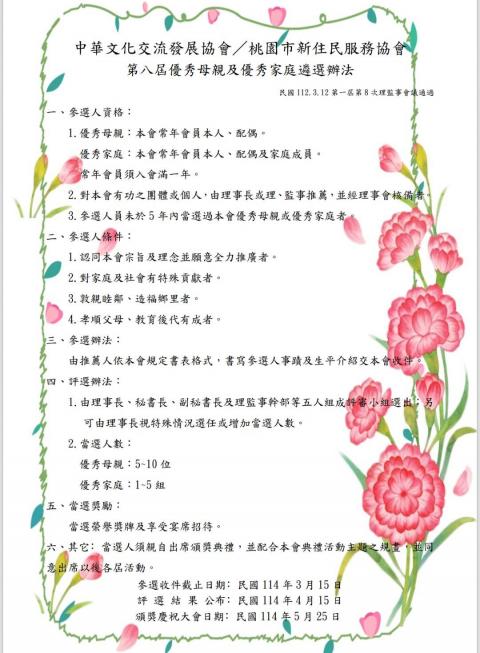 中華文化交流發展協會／桃園市新住民服務協會
第八屆優秀母親及優秀家庭遴選辦法
民國 112.3.12 第一屆第 8 次理監事會議通過
一、參選人資格：
1.優秀母親：本會常年會員本人、配偶。
優秀家庭：本會常年會員本人、配偶及家庭成員。
常年會員須入會滿一年。
2.對本會有功之團體或個人，由理事長或理、監事推薦，並經理事會核備者。
3.參選人員未於 5 年內當選過本會優秀母親或優秀家庭者。
二、參選人條件：
1.認同本會宗旨及理念並願意全力推廣者。
2.對家庭及社會有特殊貢獻者。
3.敦親睦鄰、造福鄉里者。
4.孝順父母、教育後代有成者。
三、參選辦法：
由推薦人依本會規定書表格式，書寫參選人事蹟及生平介紹交本會收件。
四、評選辦法：
1.由理事長、秘書長、副秘書長及理監事幹部等五人組成評審小組選出；另
可由理事長視特殊情況選任或增加當選人數。
2.當選人數：
優秀母親：5~10 位
優秀家庭：1~5 組
五、當選獎勵：
當選榮譽獎牌及享受宴席招待。
六、其它：當選人須親自出席頒獎典禮，並配合本會典禮活動主題之規畫，並同
意出席以後各屆活動。
參選收件截止日期: 民國 114 年 3 月 15 日
評 選 結 果 公布: 民國 114 年 4 月 15 日
頒獎慶祝大會日期: 民國 114 年 5 月 25 日